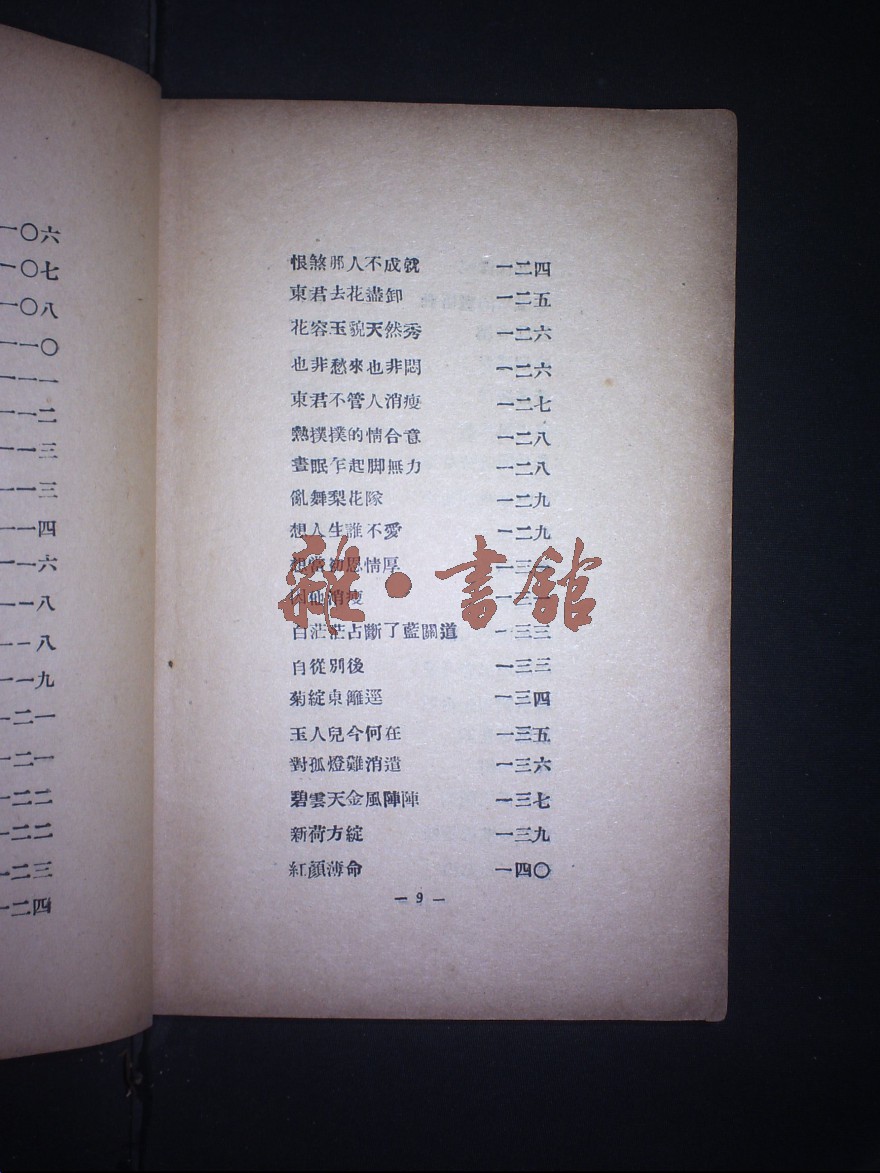 一〇六
一〇七
一〇八
一一〇
一一一
一一二
一一三
一一三
一一四
一一六
一一八
一一八
一一九
一二一
一二一
一二二
一二二
一二三
一二四
恨煞那人不成就 一二四
東君去花盡卸 一二五
花容玉貌天然秀 一二六
也非愁來也非悶 一二六
東君不管人消瘦 一二七
熱撲撲的情合意 一二八
晝眠乍起脚無力 一二八
亂舞梨花隊 一二九
想人生誰不愛 一二九
想當初恩情厚 一三一
因他消瘦 一三一
白茫茫占斷了藍關道 一三三
自從別後 一三三
菊綻東籬逕 一三四
玉人兒今何在 一三五
對孤燈難消遣 一三六
碧雲天金風陣陣 一三七
新荷方綻 一三九
紅顏薄命 一四〇
— 9 —
雜·書館